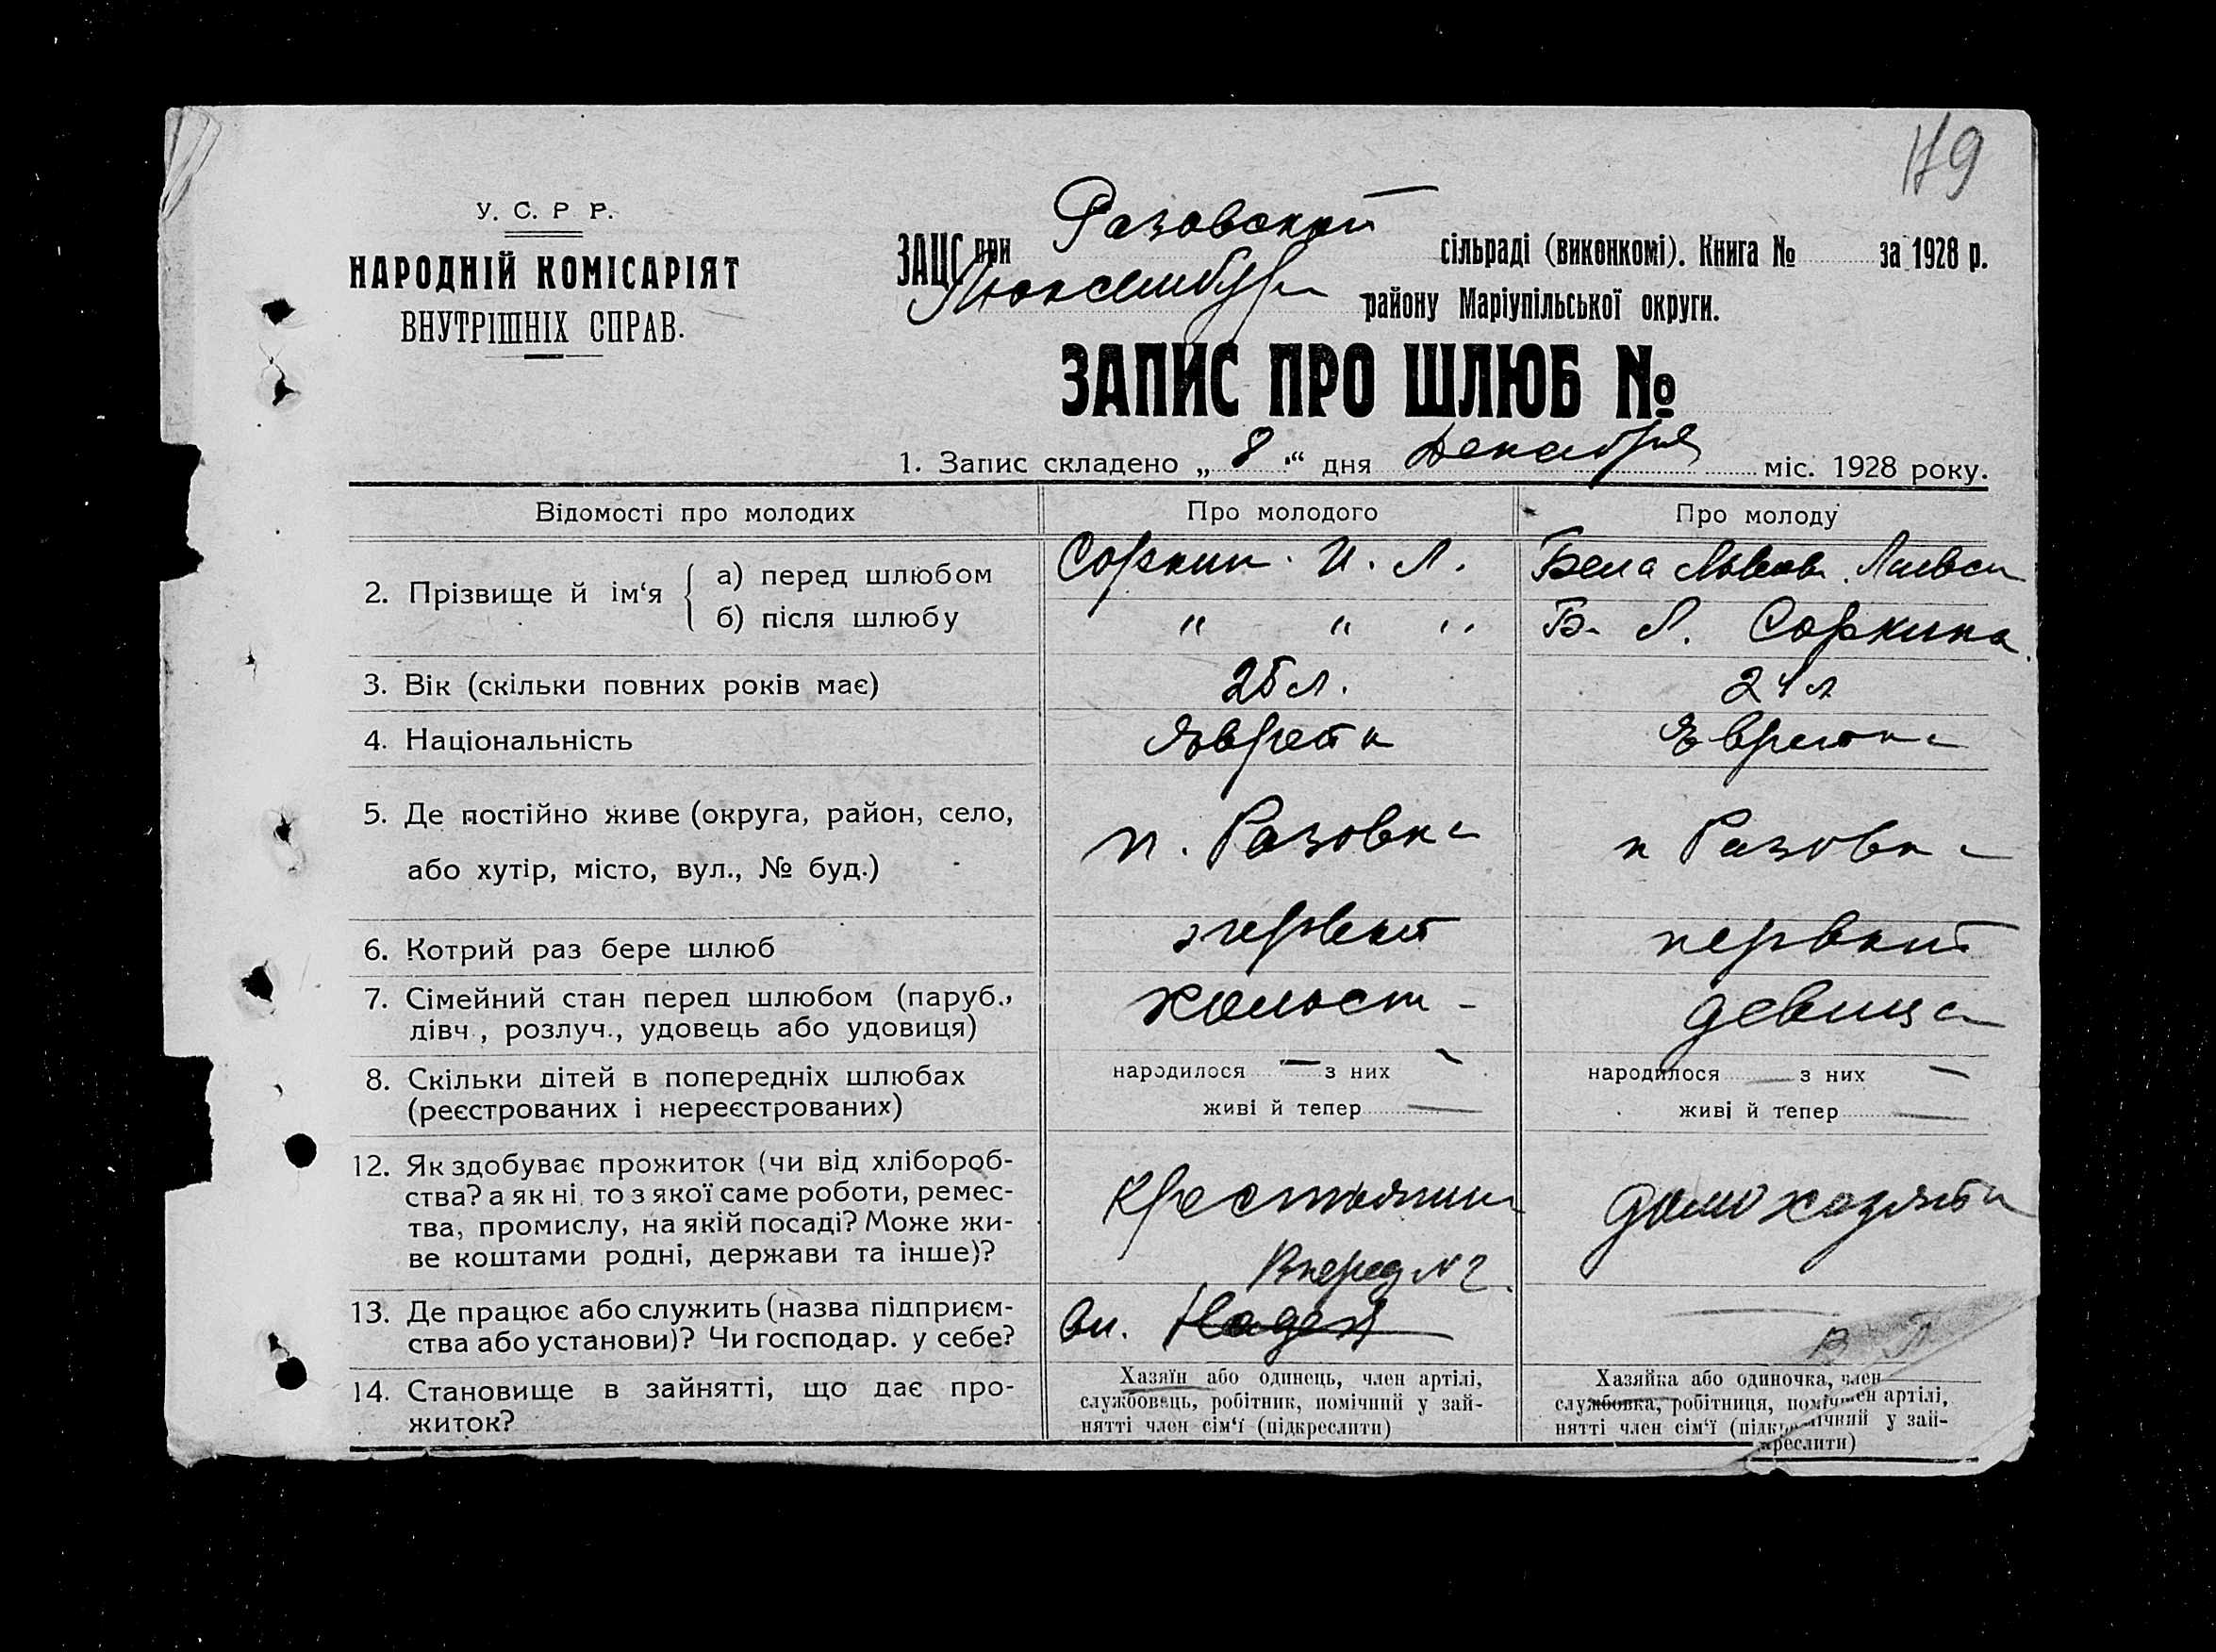 119
У. С. Р Р.
НАРОДНІЙ КОМІСАРІЯТ
ВНУТРІШНІХ СПРАВ.
ЗАЦС при Розовской сільраді (виконкомі). Книга № за 1928 р.
Люксембург району Маріупільської округи.
ЗАПИС ПРО ШЛЮБ №
1. Запис складено „ 8 “ дня Декабря міс. 1928 року.
Відомості про молодих Про молодого Про молоду
2. Прізвище й ім‘я
а) перед шлюбом Соркин. И. Л. Бела Львов.
б) після шлюбу " " " Б. Л. Соркина
3. Вік (скільки повних років має) 25 л. 21 л
4. Національність Яврей Еврейка
5. Де постійно живе (округа, район, село,
або хутір, місто, вул., № буд.) п. Розовка п Розовка
6. Котрий раз бере шлюб первый первый
7. Сімейний стан перед шлюбом (паруб.,
дівч., розлуч., удовець або удовиця) холост - девица
8. Скільки дітей в попередніх шлюбах
(реєстрованих і нереєстрованих)
народилося — з них —
живі й тепер —
народилося — з них —
живі й тепер —
12. Як здобуває прожиток (чи від хлібороб-
ства? а як ні, то з якої саме роботи, ремес-
тва, промислу, на якій посаді? Може жи-
ве коштами родні, держави та інше)?
крестьянин домохозяйка
Вперед № 2.
13. Де працює або служить (назва підприєм-
ства або установи)? Чи господар. у себе?
14. Становище в зайнятті, що дає про-
житок?
Хазяїн або одинець, член артілі,
службовець, робітник, помічний у зай-
нятті член сім‘ї (підкреслити)
Хазяйка або одиночка, член
службовка, робітниця, артілі,
нятті член сім‘ї у зай-